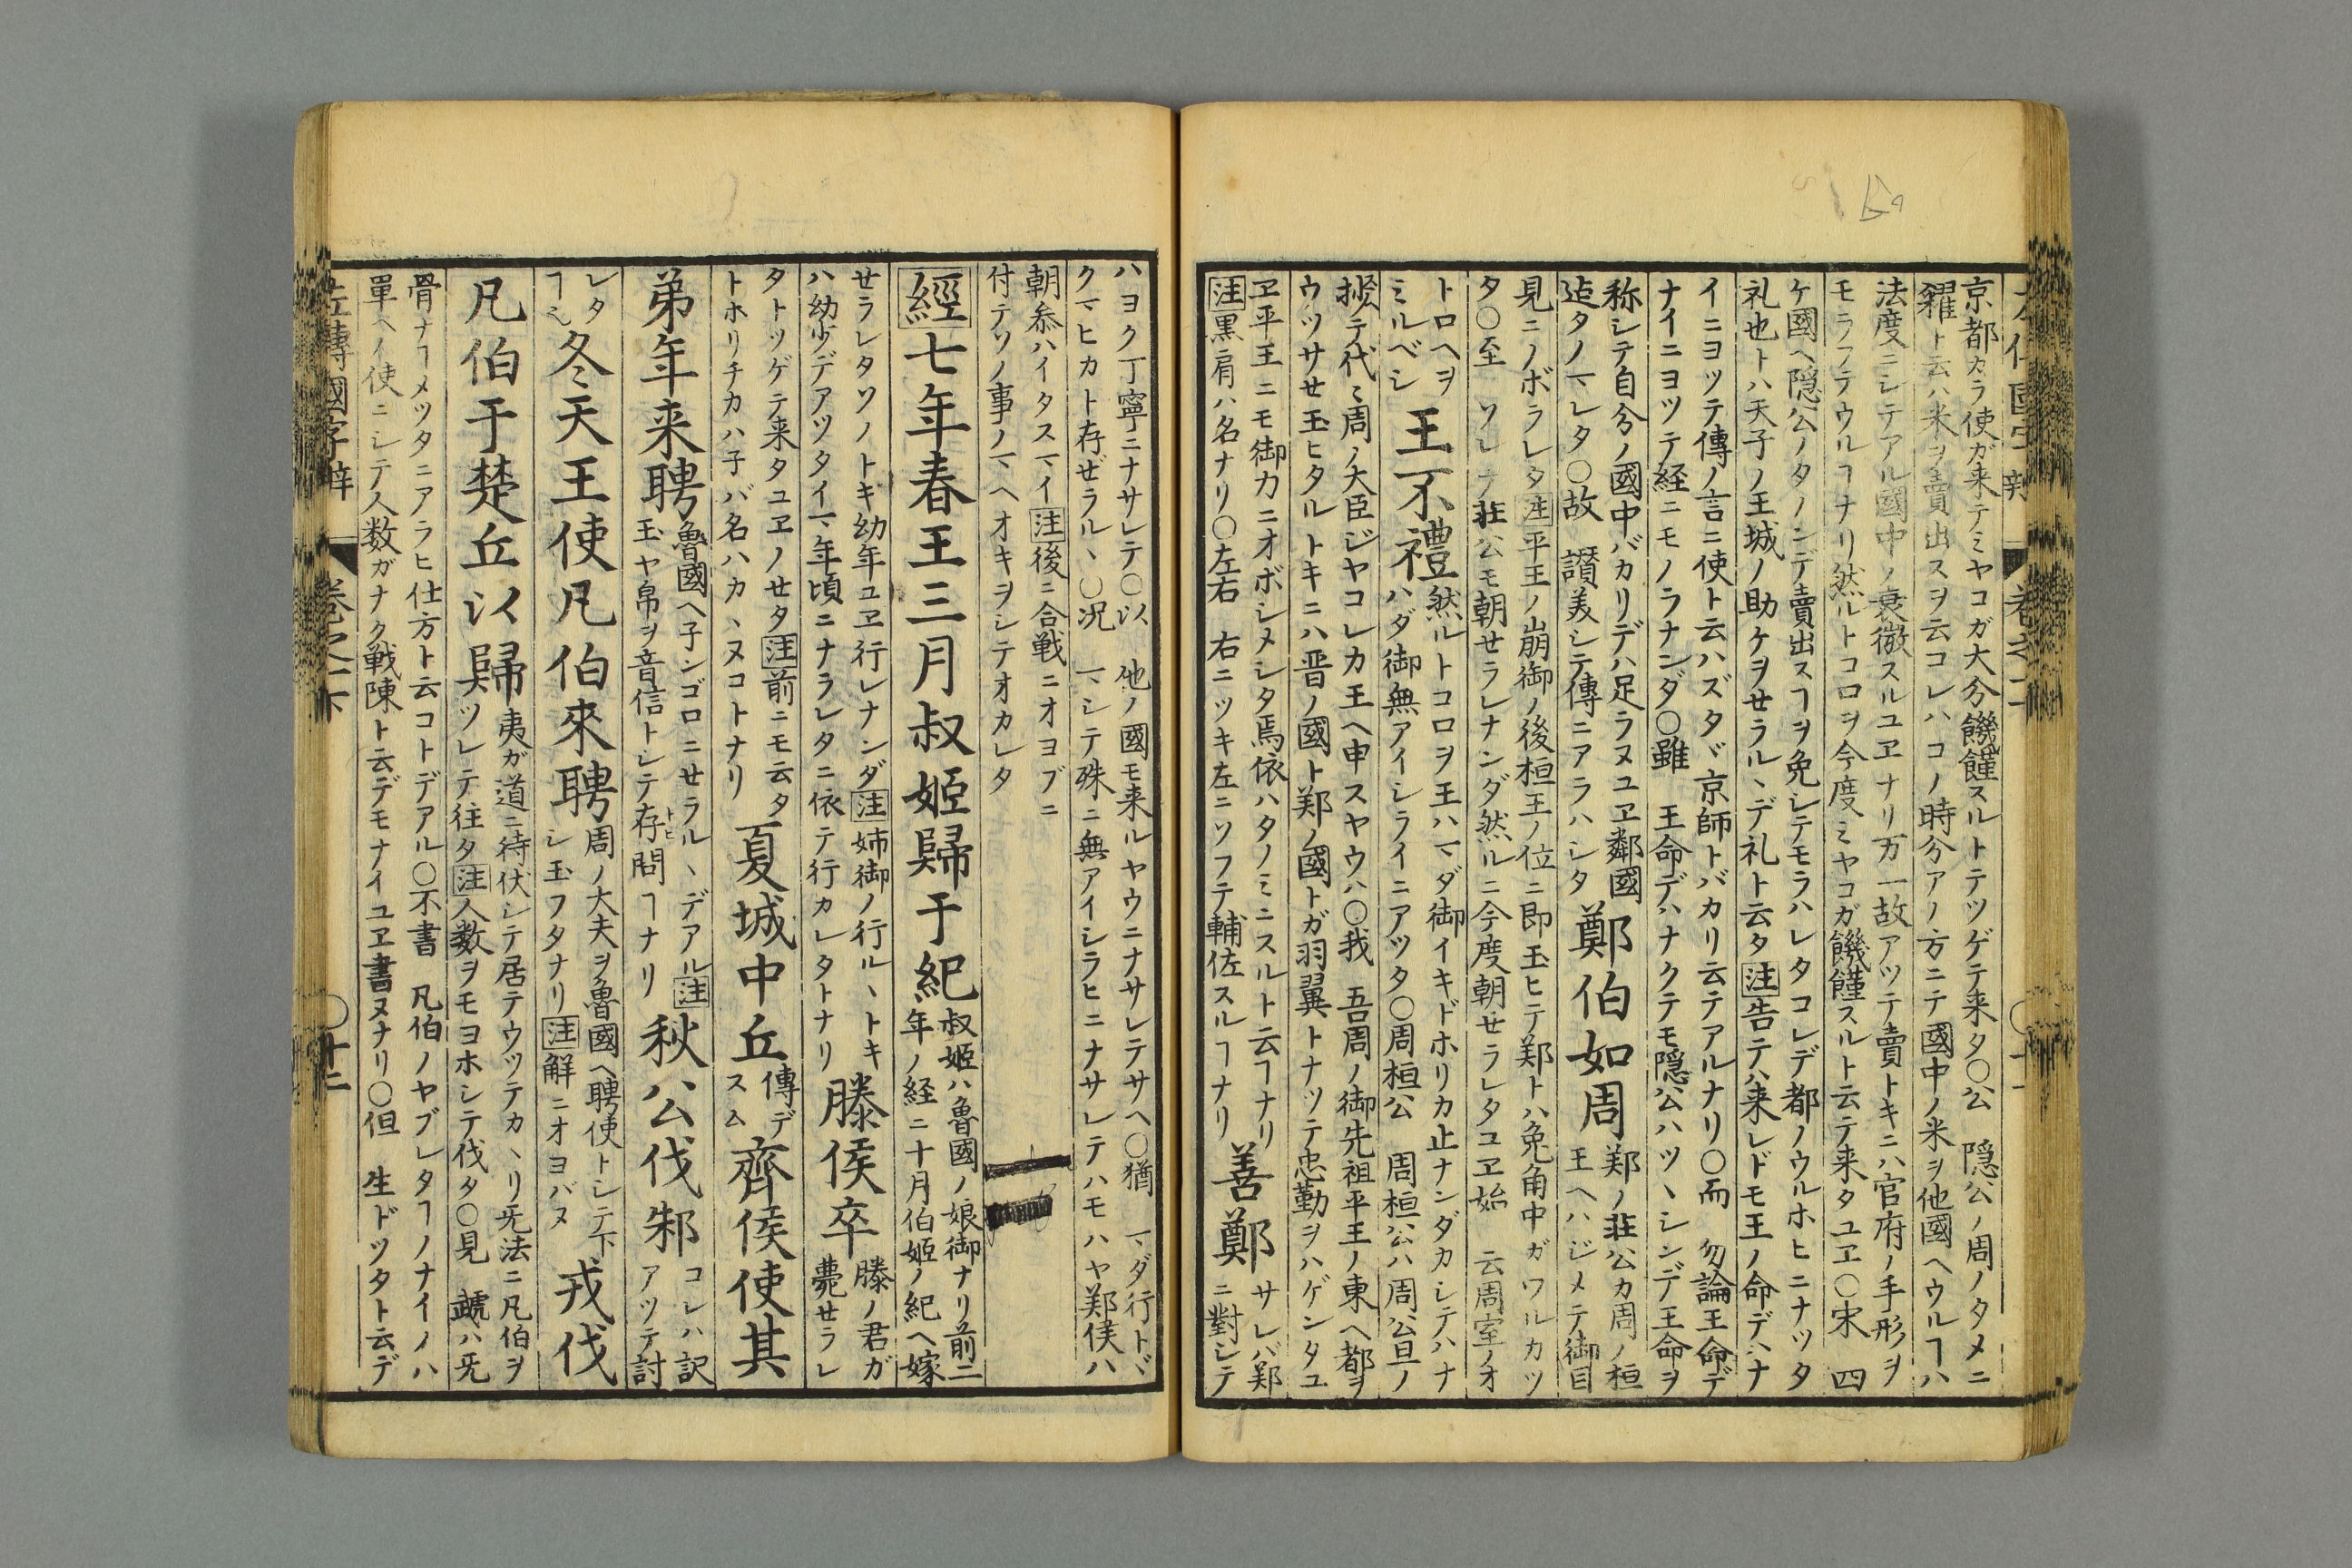 京都カラ使ガ来テミヤコガ大分饑饉スルトテツゲテ来タ〇公 隠公ノ周ノタメニ
糴ト云ハ米ヲ賣出スヲ云コレハコノ時分アノ方ニテ國中ノ米ヲ他國ヘウルヿハ
法度ニシテアル國中ノ衰微スルユヱナリ万一故アツテ賣トキニハ官府ノ手形ヲ
モラフテウルヿナリ然ルトコロヲ今度ミヤコガ饑饉スルト云テ来タユヱ〇宋 四
ケ國ヘ隠公ノタノンデ賣出スヿヲ免シテモラハレタコレデ都ノウルホヒニナツタ
礼也トハ天子ノ王城ノ助ケヲせラルヽデ礼ト云タ注告テハ来レドモ王ノ命デハナ
イニヨツテ傳ノ言ニ使ト云ハズタヾ京師トバカリ云テアルナリ〇而 勿論王命デ
ナイニヨツテ経ニモノラナンダ〇雖 王命デハナクテモ隠公ハツヽシンデ王命ヲ
称シテ自分ノ國中バカリデハ足ラヌユヱ鄰國
迠タノマレタ〇故 讃美シテ傳ニアラハシタ
鄭伯如周
郑ノ荘公カ周ノ桓
王ヘハジメテ御目
見ニノボラレタ注平王ノ崩御ノ後桓王ノ位ニ即玉ヒテ郑トハ兔角中ガワルカツ
タ〇至 ソレデ荘公モ朝せラレナンダ然ルニ今度朝せラレタユヱ始 云周室ノオ
トロヘヲ
ミルベシ
王不禮
然ルトコロヲ王ハマダ御イキドホリカ止ナンダカシテハナ
ハダ御無アイシライニアツタ〇周桓公 周桓公ハ周公旦ノ
㧾テ代ミ周ノ大臣ジヤコレカ王ヘ申スヤウハ〇我 吾周ノ御先祖平王ノ東ヘ都ヲ
ウツサせ玉ヒタルトキニハ晋ノ國ト郑ノ國トガ羽翼トナツテ忠勤ヲハゲンタユ
ヱ平王ニモ御力ニオボシメシタ焉依ハタノミニスルト云ヿナリ
注黒肩ハ名ナリ〇左右 右ニツキ左ニソフテ輔佐スルヿナリ
善鄭
サレバ郑
ニ對シテ
ハヨク丁寧ニナサレテ〇以 他ノ國モ来ルヤウニナサレテサヘ〇猶 マダ行トヾ
クマヒカト存ぜラルヽ〇况 マシテ殊ニ無アイシラヒニナサレテハモハヤ郑侯ハ
朝叅ハイタスマイ注後ニ合戦ニオヨブニ
付テソノ事ノマヘオキヲシテオカレタ
經七年春王三月叔姬歸于紀
叔姬ハ魯國ノ娘御ナリ前二
年ノ経ニ十月伯姬ノ紀ヘ嫁
せラレタソノトキ幼年ユヱ行レナンダ注姉御ノ行ルヽトキ
ハ幼少デアツタイマ年頃ニナラレタニ依テ行カレタトナリ
滕侯卒
滕ノ君ガ
薨せラレ
タトツゲテ来タユヱノせタ注前ニモ云タ
トホリチカハ子バ名ハカヽヌコトナリ
夏城中丘
傳デ
スム
齊侯使其
弟年来聘
魯國ヘ子ンゴロニせラルヽデアル注
玉ヤ帛ヲ音信トシテ存問ヿナリ
秋公伐邾
コレハ訳
アツテ討
レタ
ヿ也
冬天王使凡伯來聘
周ノ大夫ヲ魯國ヘ聘使トシテ下
シ玉フタナリ注解ニオヨバヌ
戎伐
凡伯于楚丘以歸
夷ガ道ニ待伏シテ居テウツテカヽリ旡法ニ凡伯ヲ
ツレテ往タ注人数ヲモヨホシテ伐タ〇見 蔬ハ旡
骨ナヿメツタニアラヒ仕方ト云コトデアル〇不書 凡伯ノヤブレタヿノナイノハ
單ヘノ使ニシテ人数ガナク戦陳ト云デモナイユヱ書ヌナリ〇但 生ドツタト云デ
左傳國字辯 巻之一下 〇廿二